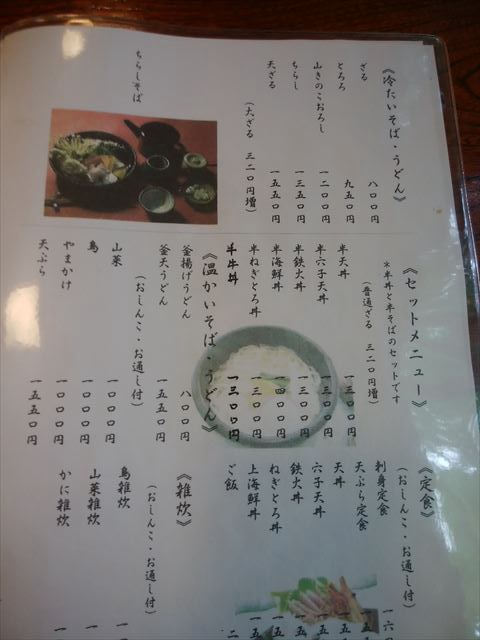 《冷たいそば・うどん》
ざる 八〇〇円
とろろ 九五〇円
山きのこおろし 一二〇〇円
ちらし 一三五〇円
天ざる 一五五〇円
(大ざる 三二〇円増)
ちらしそば
《セットメニュー》
*半丼と半そばのセットです
(普通ざる 三二〇円増)
半天丼 一三〇〇円
半六子天丼 一三〇〇円
半鉄火丼 一三〇〇円
半海鮮丼 一四〇〇円
半ねぎとろ丼 一三〇〇円
半牛丼 一三〇〇円
《温かいそば・うどん》
釜揚げうどん 八〇〇円
釜天うどん 一五五〇円
(おしんこ・お通し付)
山菜 一〇〇〇円
鳥 一〇〇〇円
やまかけ 一〇〇〇円
天ぷら 一五五〇円
《定食》
(おしんこ・お通し付)
刺身定食
天ぷら定食
天丼
六子天丼
鉄火丼
ねぎとろ丼
上海鮮丼
ご飯
《雑炊》
(おしんこ・お通し付)
鳥雑炊
山菜雑炊
かに雑炊